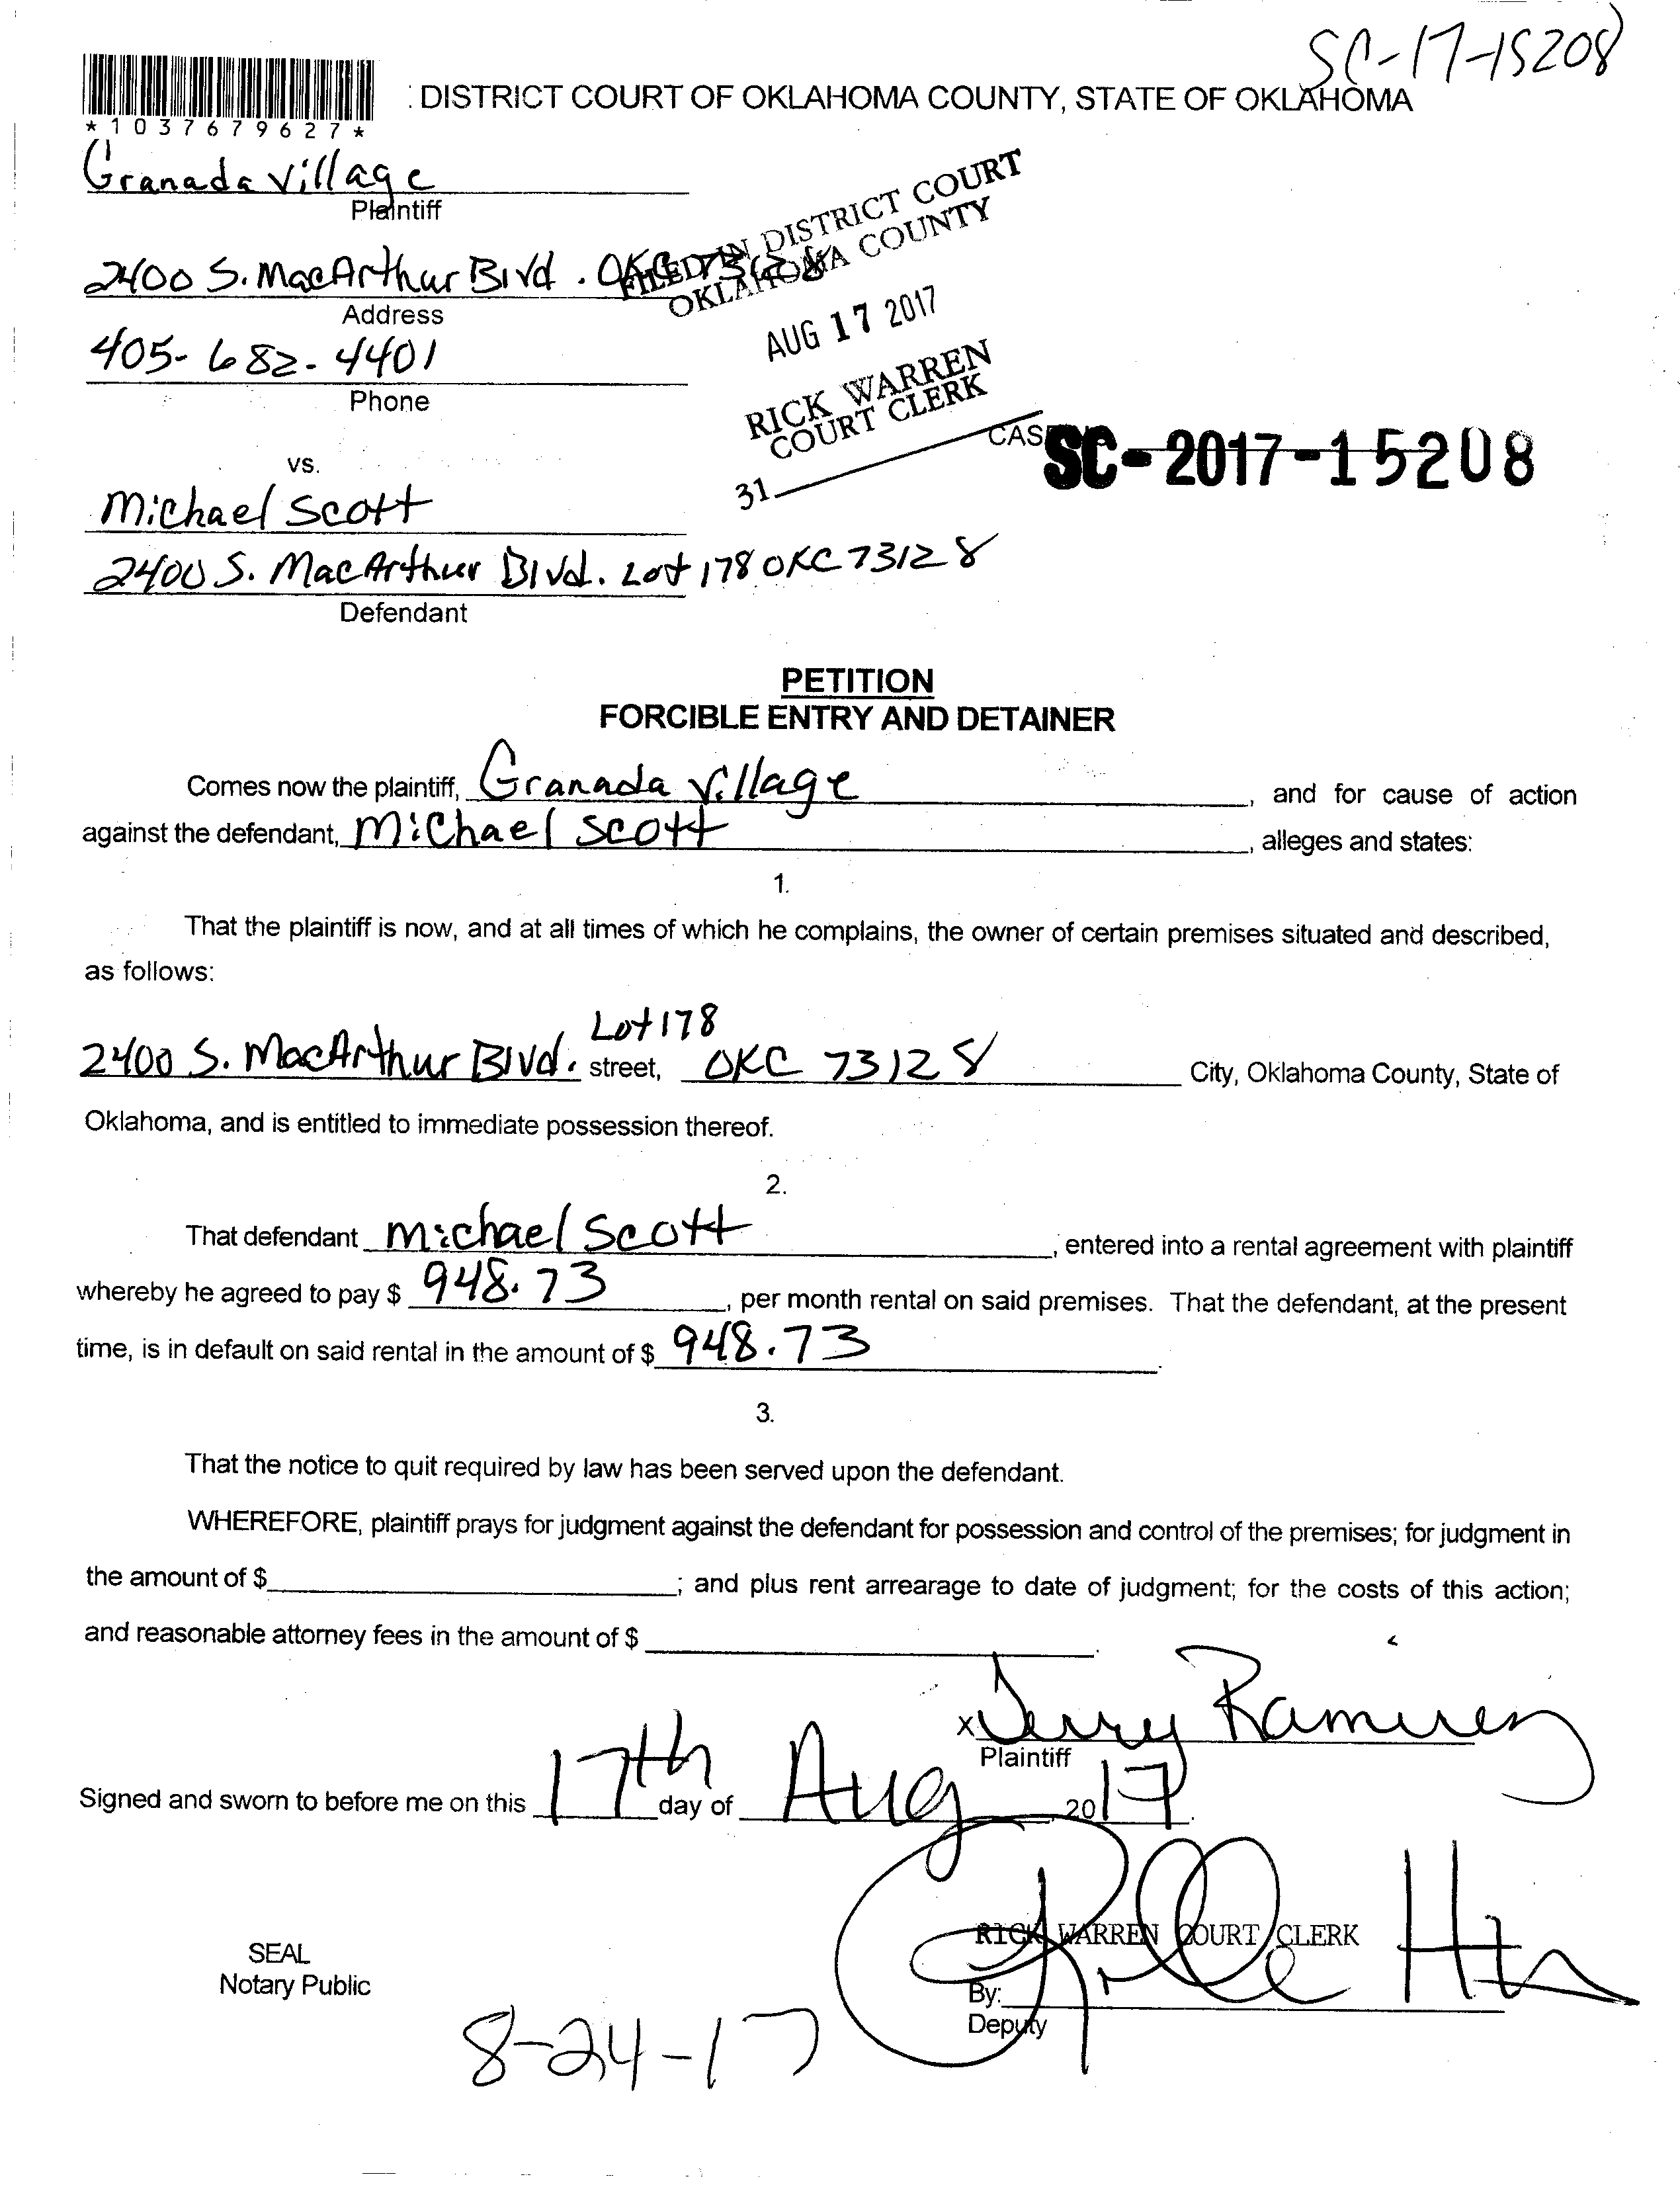 SC-17-15208
: DISTRICT COURT OF OKLAHOMA COUNTY, STATE OF OKLAHOMA
*1037679627*
Granada Village
Plaintiff
2400 S. MacArthur Blvd. OKC 73128
Address
405-682-4401
Phone
FILED IN DISTRICT COURT
OKLAHOMA COUNTY
AUG 17 2017
RICK WARREN
COURT CLERK
31
CAS SC-2017-15208
vs.
Michael Scott
2400 S. MacArthur Blvd. Lot 178 OKC 73128
Defendant
PETITION
FORCIBLE ENTRY AND DETAINER
Comes now the plaintiff, Granada Village, and for cause of action
against the defendant, Michael Scott, alleges and states:
1.
That the plaintiff is now, and at all times of which he complains, the owner of certain premises situated and described,
as follows:
Lot 178
2400 S. MacArthur Blvd. street, OKC 73128 City, Oklahoma County, State of
Oklahoma, and is entitled to immediate possession thereof.
2.
That defendant Michael Scott, entered into a rental agreement with plaintiff
whereby he agreed to pay $ 948.73, per month rental on said premises. That the defendant, at the present
time, is in default on said rental in the amount of $ 948.73.
3.
That the notice to quit required by law has been served upon the defendant.
WHEREFORE, plaintiff prays for judgment against the defendant for possession and control of the premises; for judgment in
the amount of $ ; and plus rent arrearage to date of judgment; for the costs of this action;
and reasonable attorney fees in the amount of $ .
x Jerry Ramirez
Plaintiff
Signed and sworn to before me on this 17th day of Aug, 2017.
RICK WARREN COURT CLERK
SEAL
Notary Public
By:
Deputy
8-24-17